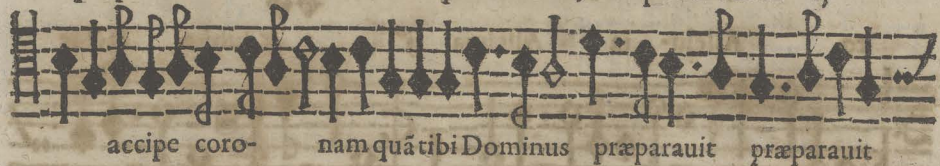 accipe coro- nam quã tibi Dominus præparauit præparauit